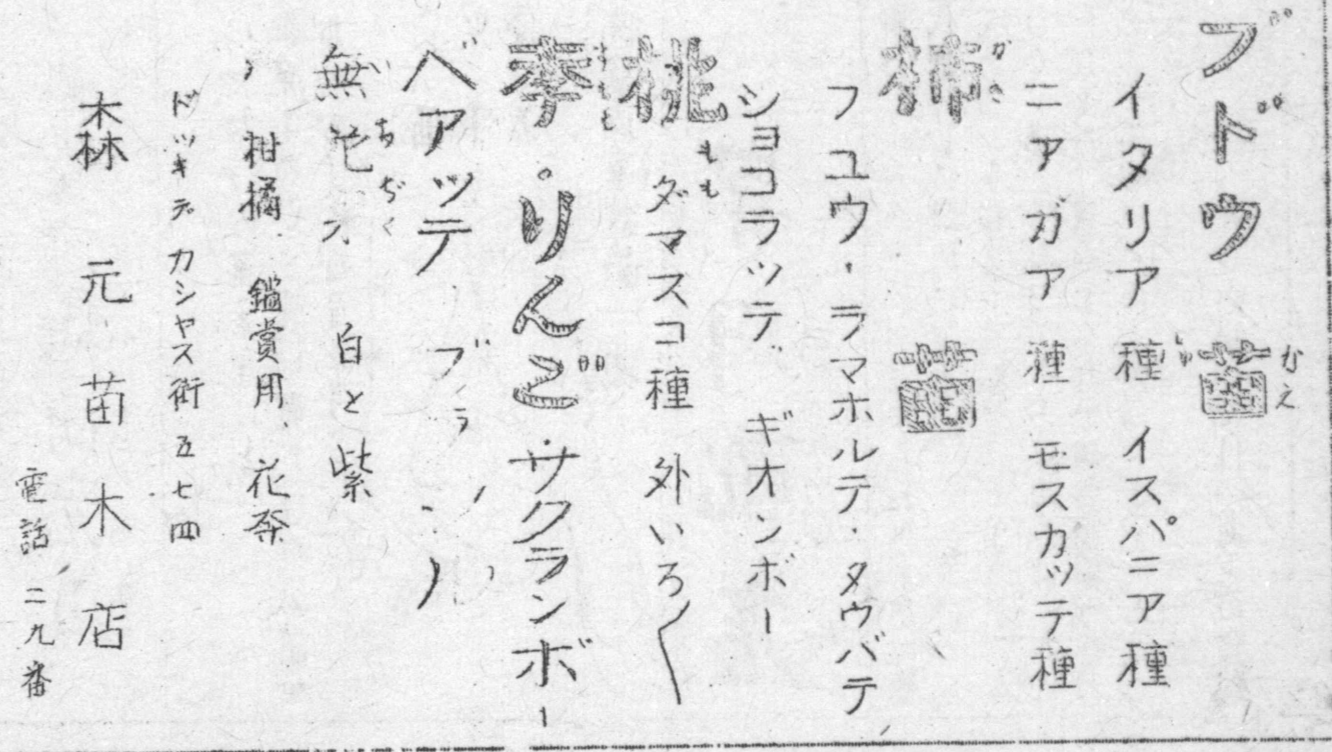 ブドウ 苗
イタリア種 イスパニア種
ニアガア種 モスカッテ種
柿 苗
フユウ・ラマホルテ・タウバテ
ショコラッテ、ギオンボー
桃 ダマスコ種 外いろ〱
李・りんご・サクランボー
ベアッテ
無花 白と紫
柑橘、鑑賞用、花
カシヤス街五七四
森元苗木店
電話 二九番